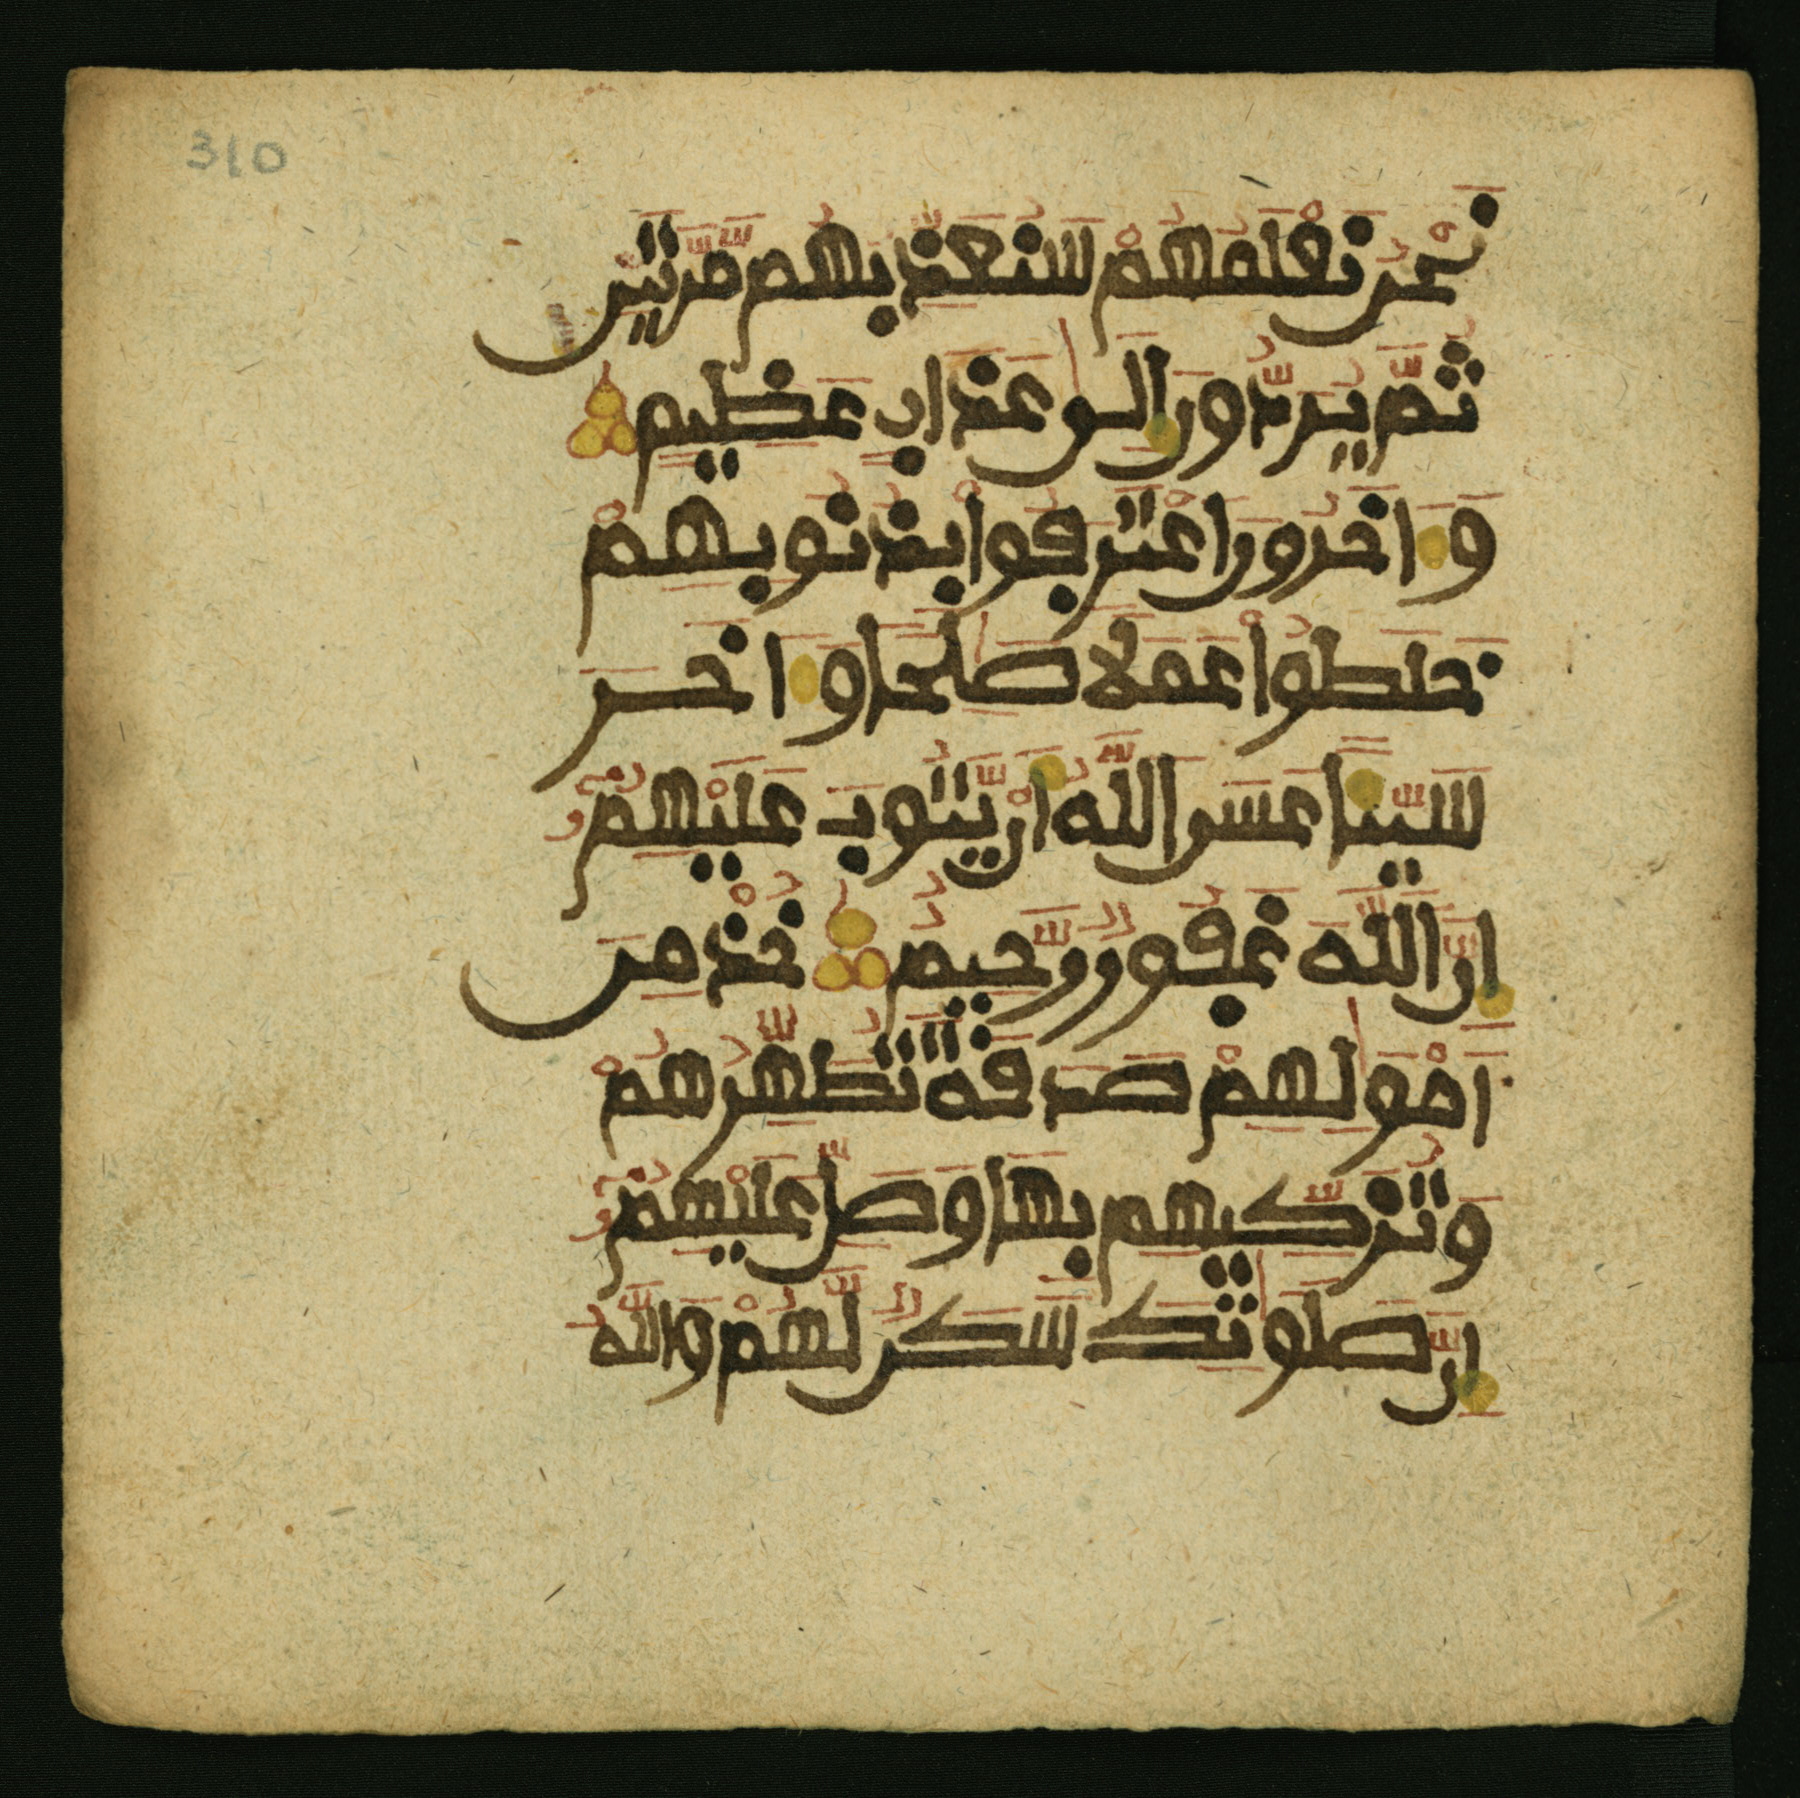 310
نَحْنُ نَعْلَمُهُمْ سَنُعَذِّبُهُم مَّرَّتَيْنِ
ثُمَّ يُرَدُّونَ إِلَىٰ عَذَابٍ عَظِيمٍ
وَءَاخَرُونَ اعْتَرَفُواْ بِذُنُوبِهِمْ
خَلَطُواْ عَمَلًا صَٰلِحًا وَءَاخَرَ
سَيِّئًا عَسَى اللَّهُ أَنْ يَّتُوبَ عَلَيْهِمُۥٓ
إِنَّ اللَّهَ غَفُورٌ رَّحِيمٌ خُذْ مِنَ
اَمْوَٰلِهِمْ صَدَقَةً تُطَهِّرُهُمْ
وَتُزَكِّيهِم بِهَا وَصَلِّ عَلَيْهِمُۥٓ
إِنَّ صَلَوَٰتِكَ سَكَنٌ لَّهُمْ وَاللَّهُ